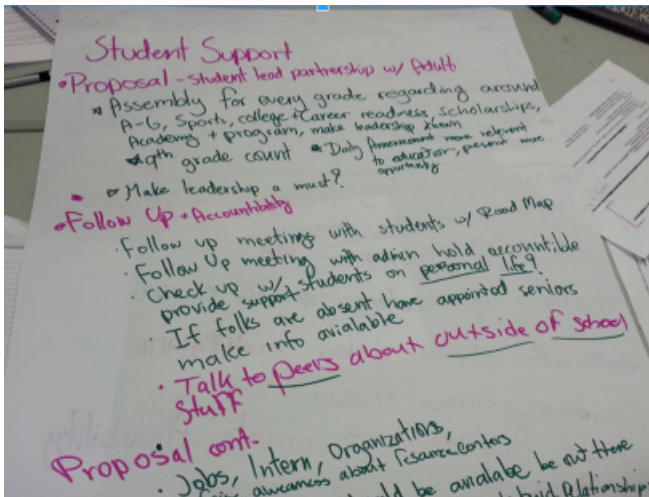 Student Support
• Proposal - Student lead partnership w/ Adult
* Assembly for every grade regarding around
A-G, Sports, college + career readiness, scholarships,
Academy + program, make leadership known
* 9th grade count * Daily more relevent
to educator, present more
opportunity
Make leadership a must?
• Follow Up + Accountibility
· Follow up meeting with students w/ Road Map
· Follow Up meeting with admin hold accountible
· Check up w/ students on personal life?
provide support
· If folks are absent have appointed seniors
make info avialable
· Talk to peers about outside of school
stuff
Proposal cont.
· Jobs, Intern, Organizations,
awareness about resource centers
be avialabe be out there